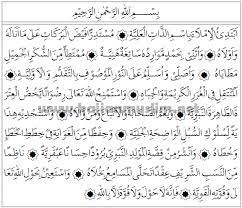 بِسْمِ اللهِ الرَّحْمٰنِ الرَّحِيْمِ
أَبْتَدِئُ الْإِمْلَاءَ بِاسْمِ الذَّاتِ الْعَلِيَّةِ ۞ مُسْتَدِرًّا فَيْضَ الْبَرَكَاتِ عَلَى مَا أَنَالَهُ
وَأَوْلَاهُ ۞ وَأُثَنِّيْ بِحَمْدٍ مَوَارِدُهُ سَائِغَةٌ هَنِيَّةٌ ۞ مُمْتَطِيًا مِنَ الشُّكْرِ الْجَمِيْلِ
مَطَايَاهُ ۞ وَأُصَلِّيْ وَأُسَلِّمُ عَلَى النُّوْرِ الْمَوْصُوْفِ بِالتَّقَدُّمِ وَالْأَوَّلِيَّةِ ۞
الْمُنْتَقِلِ فِي الْغُرَرِ الْكَرِيْمَةِ وَالْجِبَاهِ ۞ وَأَسْتَمْنِحُ اللهَ تَعَالَى رِضْوَانًا يَخُصُّ الْعِتْرَةَ
الطَّاهِرَةَ النَّبَوِيَّةَ ۞ وَيَعُمُّ الصَّحَابَةَ وَالْأَتْبَاعَ وَمَنْ وَالَاهُ ۞ وَأَسْتَجْدِيْهِ
هِدَايَةً لِسُلُوْكِ السُّبُلِ الْوَاضِحَةِ الْجَلِيَّةِ ۞ وَحِفْظًا مِنَ الْغَوَايَةِ فِيْ خِطَطِ الْخَطَإِ
وَخُطَاهُ ۞ وَأَنْشُرُ مِنْ قِصَّةِ الْمَوْلِدِ النَّبَوِيِّ بُرُوْدًا حِسَانًا عَبْقَرِيَّةً ۞ نَاظِمًا
مِنَ النَّسَبِ الشَّرِيْفِ عِقْدًا تُحَلَّى الْمَسَامِعُ بِحُلَاهُ ۞ وَأَسْتَعِيْنُ بِحَوْلِ اللهِ تَعَالَى
وَقُوَّتِهِ الْقَوِيَّةِ ۞ فَإِنَّهُ لَا حَوْلَ وَلَا قُوَّةَ إِلَّا بِاللهِ